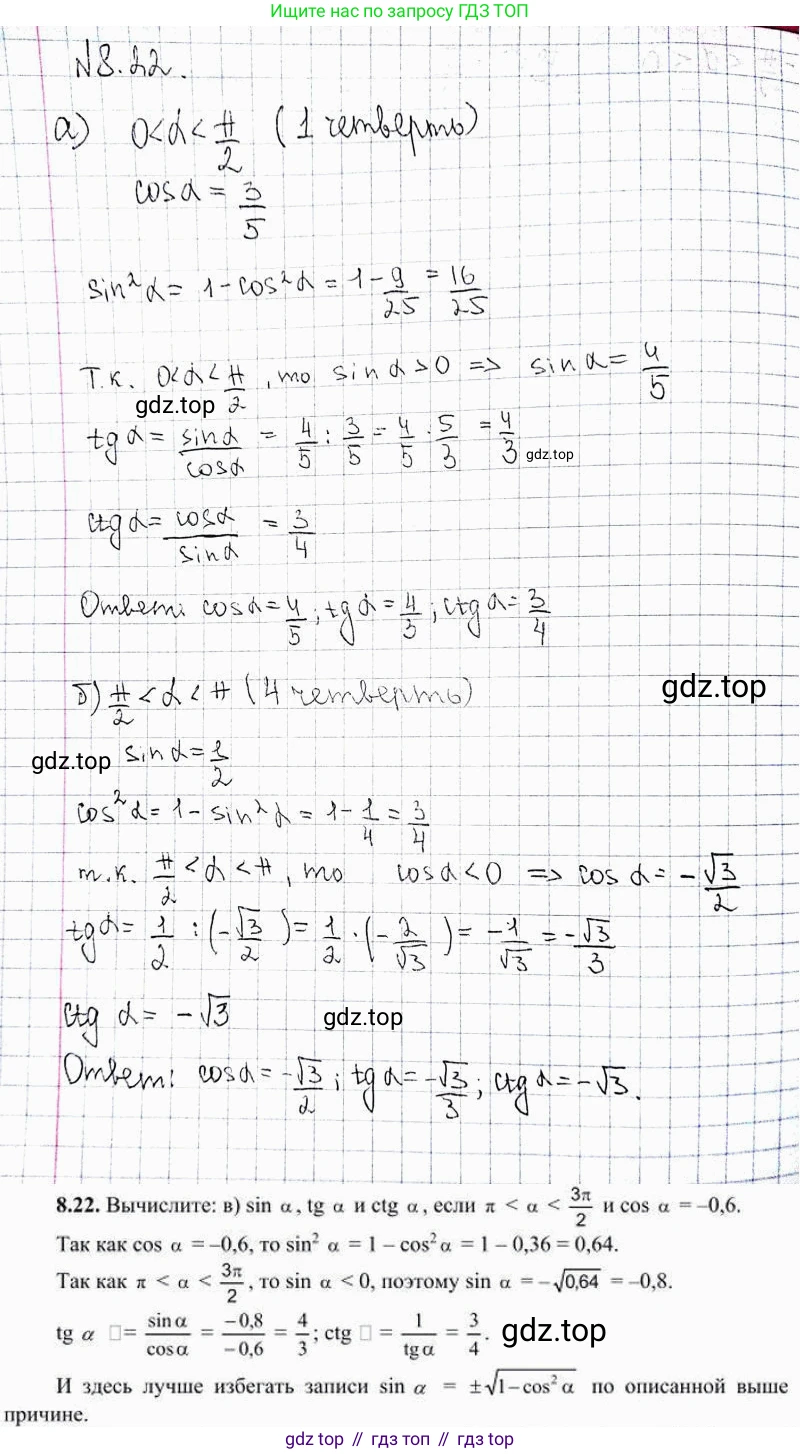 Ищите нас по запросу ГДЗ ТОП
N8.22.
а) 0<α<π/2 (1 четверть)
cosα = 3/5
sin²α = 1-cos²α = 1-9/25 = 16/25
Т.к. 0<α<π/2, то sinα>0 => sinα = 4/5
gdz.top
tgα = sinα/cosα = 4/5 : 3/5 = 4/5 · 5/3 = 4/3 gdz.top
ctgα = cosα/sinα = 3/4
Ответ: cosα=4/5; tgα=4/3; ctgα=3/4
б) π/2 <α<π (4 четверть)
gdz.top
gdz.top
sinα = 1/2
cos²α = 1 - sin²α = 1 - 1/4 = 3/4
т.к. π/2 <α<π, то cosα<0 => cosα = -√3/2
tgα = 1/2 : (-√3/2) = 1/2 · (-2/√3) = -1/√3 = -√3/3
ctgα = -√3
gdz.top
Ответ: cosα = -√3/2; tgα = -√3/3; ctgα = -√3.
8.22. Вычислите: в) sin α, tg α и ctg α, если π < α < 3π/2 и cos α = –0,6.
Так как cos α = –0,6, то sin² α = 1 – cos² α = 1 – 0,36 = 0,64.
Так как π < α < 3π/2, то sin α < 0, поэтому sin α = –√0,64 = –0,8.
tg α □= sin α/cos α = –0,8/–0,6 = 4/3; ctg □ = 1/tg α = 3/4. gdz.top
И здесь лучше избегать записи sin α = ±√1–cos² α по описанной выше
причине.
gdz.top // гдз топ // gdz.top